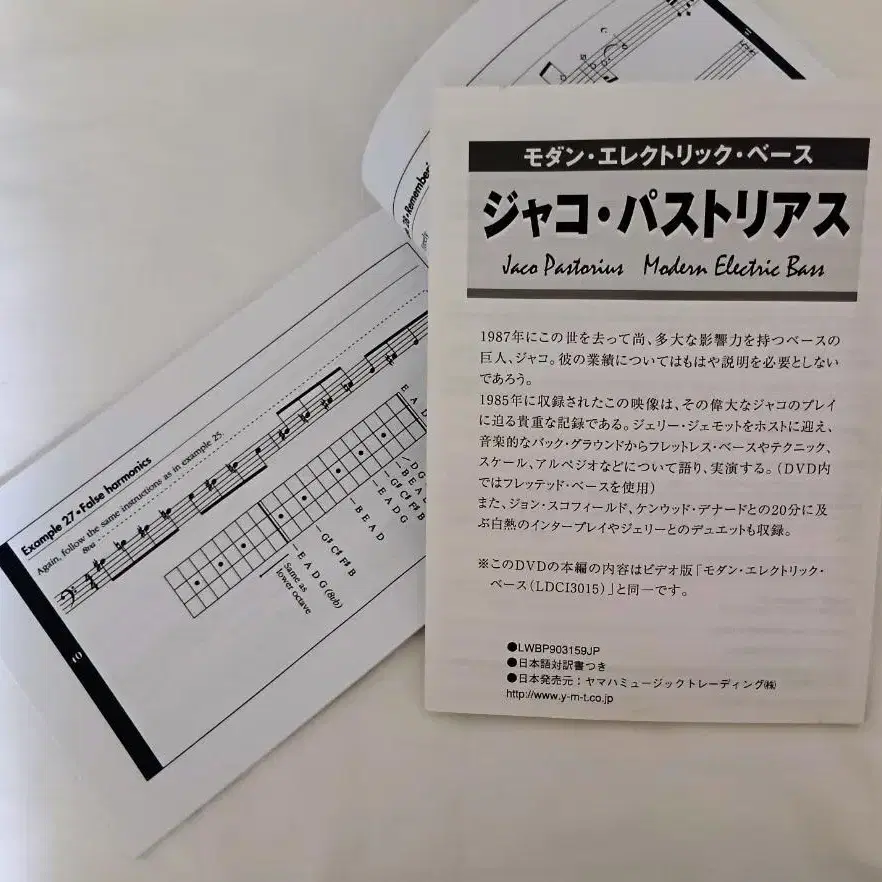 モダン・エレクトリック・ベース
ジャコ・パストリアス
Jaco Pastorius Modern Electric Bass
1987年にこの世を去って尚、多大な影響力を持つベースの
巨人、ジャコ。彼の業績についてはもはや説明を必要としない
であろう。
1985年に収録されたこの映像は、その偉大なジャコのプレイ
に迫る貴重な記録である。ジェリー・ジェモットをホストに迎え、
音楽的なバック・グラウンドからフレットレス・ベースやテクニック、
スケール、アルペジオなどについて語り、実演する。(DVD内
ではフレッテッド・ベースを使用)
また、ジョン・スコフィールド、ケンウッド・デナードとの20分に及
ぶ白熱のインタープレイやジェリーとのデュエットも収録。
※このDVDの本編の内容はビデオ版「モダン・エレクトリック・
ベース(LDCI3015)」と同一です。
●LWBP903159JP
●日本語対訳書つき
●日本発売元:ヤマハミュージックトレーディング㈱
http://www.y-m-t.co.jp
Example 27•False harmonics
Again, follow the same instructions as in example 25.
8va
E A D G (8vb)
Same as
lower octave
G# C# F# B
B E A D
E A D G
G# C# F# B
B E A D
10